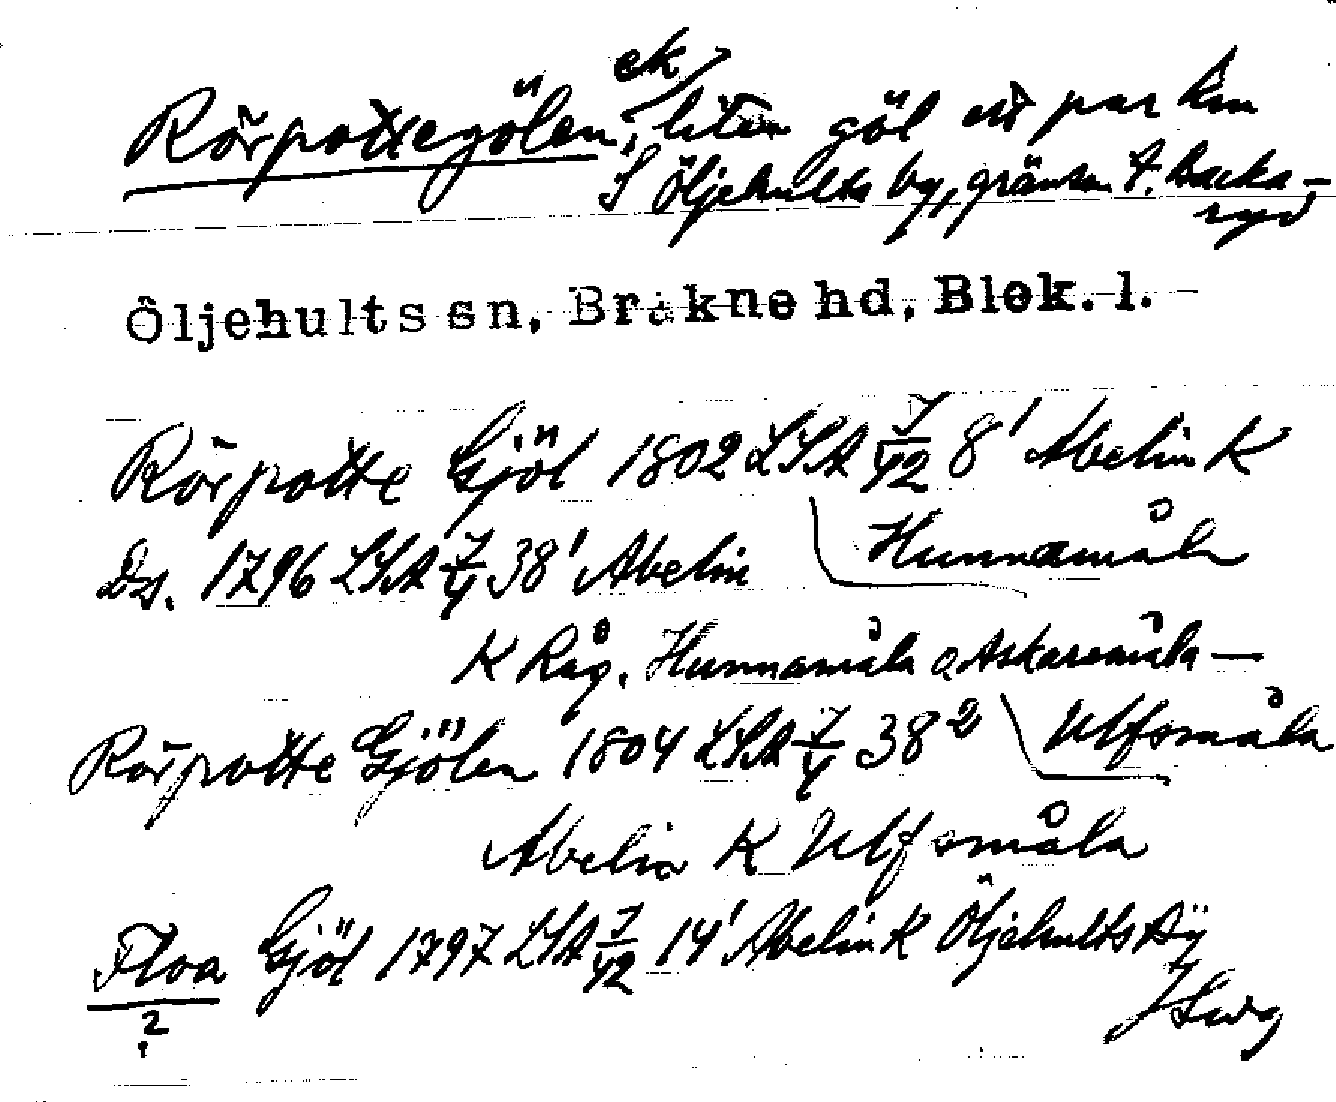 Rörpottegölen, ek liten göl ett par km
S Öljehults by, gränsen t. Backa-
ryd
Öljehults sn, Bräkne hd, Blek. l.
Rörpotte Gjöl 1802 LSA 7/42 8¹ Abelin K
Hunnamåla
Ds. 1796 LSA 7/4 38¹ Abelin
K Råg. Hunnamåla o Askaremåla —
Rörpotte Gjölen 1804 LSA 7/4 38² Ulfsmåla
Abelin K Ulfsmåla
Floa Gjöl 1797 LSA 7/42 14¹ Abelin K Öljehults Bÿ
?